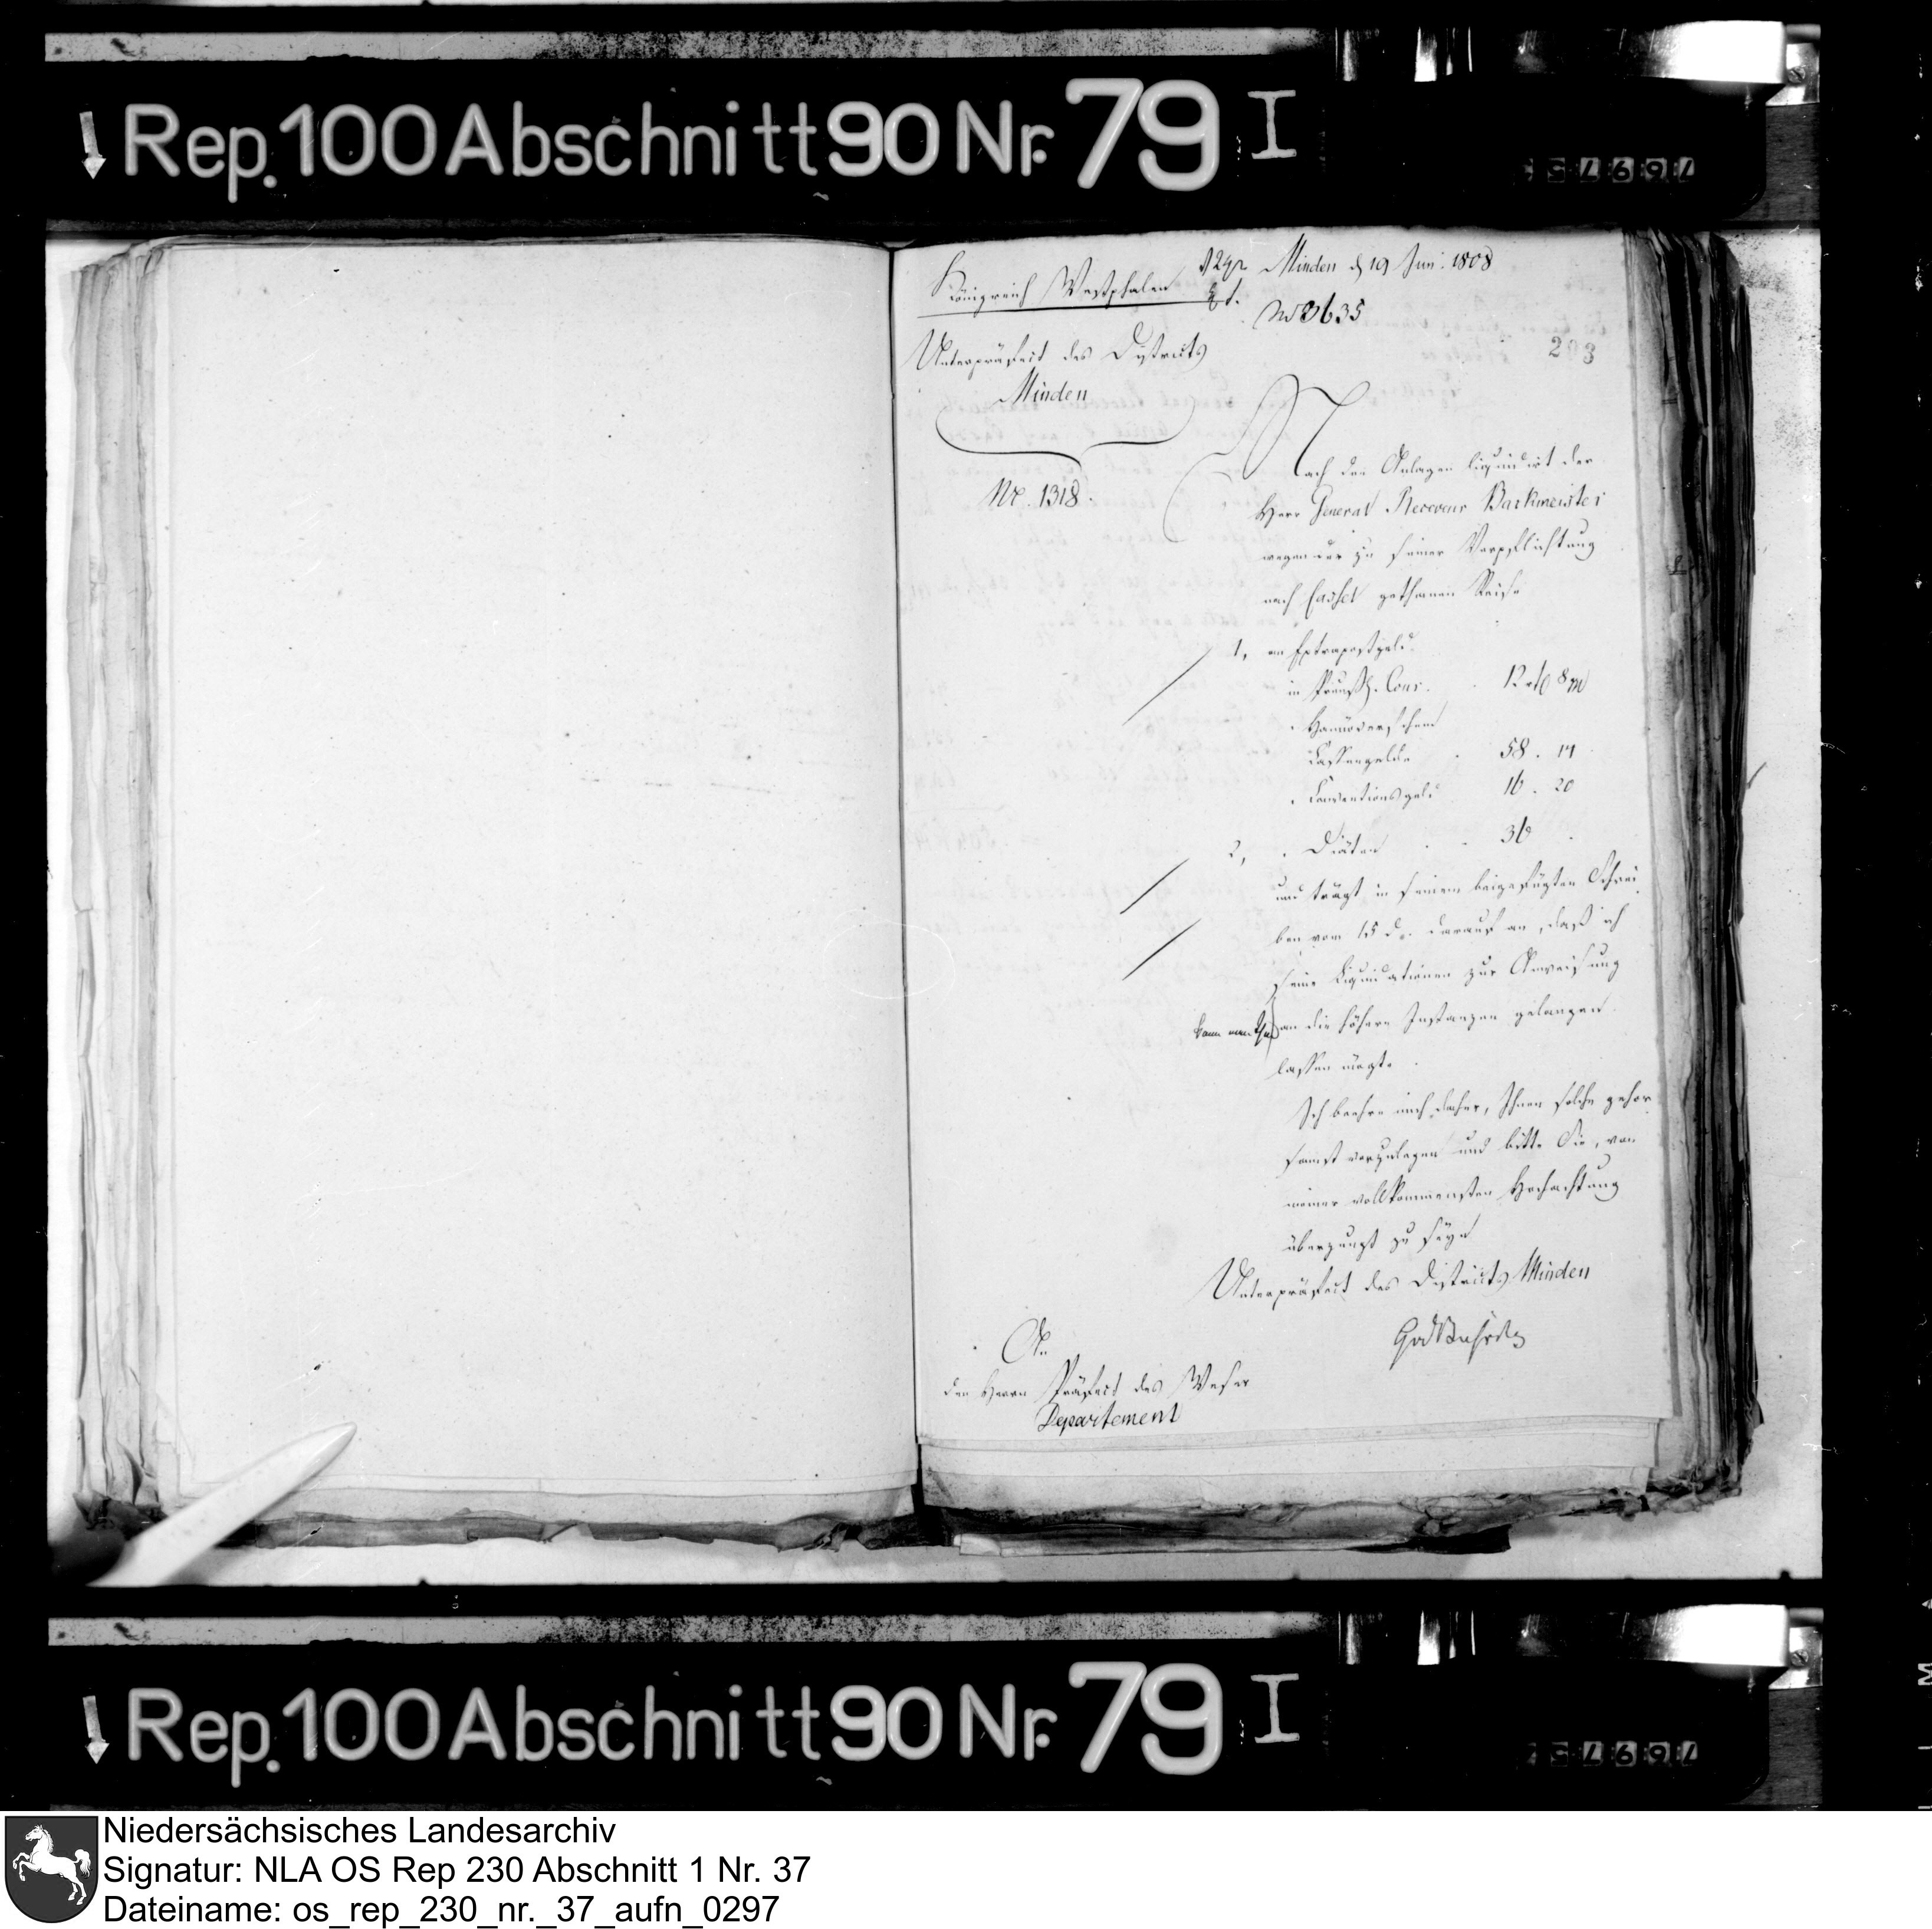 Rep. 100 Abschnitt 90 Nr. 79 I
Minden d 19 Jun: 1808
Königreich Westphalen
No 3635
203
Unterpräfect des Districts
Minden
Nr. 1318.
Nach den Anlagen liquidirt der
Herr General Receveur Barkmeister
wegen der zu seiner Verpflichtung
nach Cassel gethanen Reise
1, an Extrapostgeld
in Preuß. Cour. 12 rt 8
Hannöverschem
Cassengelde 58 . 14
Conventionsgeld 16 . 20
2, Diäten 36
und trägt in seinem beigefügten Schrei
ben vom 15 d. darauf an, daß ich
seine Liquidationen zur Anweisung
an die höhern Instanzen gelangen
lassen mögte.
Ich beehre mich daher, Ihnen solche gehor
samst vorzulegen und bitte Sie, von
meiner vollkommensten Hochachtung
überzeugt zu seyn
Unterpräfect des Districts Minden
An
den Herrn Präfect des Weser
Departement
Rep. 100 Abschnitt 90 Nr. 79 I
Niedersächsisches Landesarchiv
Signatur: NLA OS Rep 230 Abschnitt 1 Nr. 37
Dateiname: os_rep_230_nr._37_aufn_0297